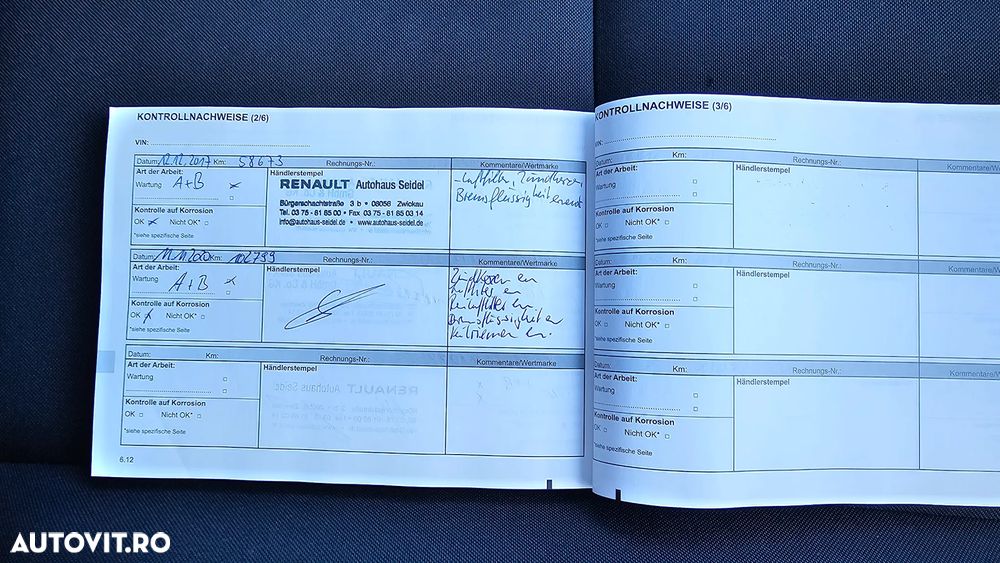 KONTROLLNACHWEISE (2/6)
VIN:
Datum: 12.12.2017 Km: 58673 Rechnungs-Nr.: Kommentare/Wertmarke
Art der Arbeit:
Wartung A+B
Kontrolle auf Korrosion
OK Nicht OK*
*siehe spezifische Seite
Händlerstempel
RENAULT Autohaus Seidel
Bürgerschachtstraße 3 b • 08056 Zwickau
Tel. 03 75 - 81 85 00 • Fax 03 75 - 81 85 03 14
info@autohaus-seidel.de • www.autohaus-seidel.de
- Luftfilter, Zündkerzen,
Bremsflüssigkeit erneut
Datum: Km: 102799 Rechnungs-Nr.: Kommentare/Wertmarke
Art der Arbeit:
Wartung A+B
Kontrolle auf Korrosion
OK Nicht OK*
*siehe spezifische Seite
Händlerstempel
Zündkerzen en
Luftfilter en
Bremsflüssigkeit en
Datum: Km: Rechnungs-Nr.: Kommentare/Wertmarke
Art der Arbeit:
Wartung
Kontrolle auf Korrosion
OK Nicht OK*
*siehe spezifische Seite
Händlerstempel
6.12
KONTROLLNACHWEISE (3/6)
VIN:
Datum: Km: Rechnungs-Nr.: Kommentare/W
Art der Arbeit:
Wartung
Kontrolle auf Korrosion
OK Nicht OK*
*siehe spezifische Seite
Händlerstempel
Datum: Km: Rechnungs-Nr.: Kommentare/W
Art der Arbeit:
Wartung
Kontrolle auf Korrosion
OK Nicht OK*
*siehe spezifische Seite
Händlerstempel
Datum: Km: Rechnungs-Nr.: Kommentare/W
Art der Arbeit:
Wartung
Kontrolle auf Korrosion
OK Nicht OK*
*siehe spezifische Seite
Händlerstempel
AUTOVIT.RO